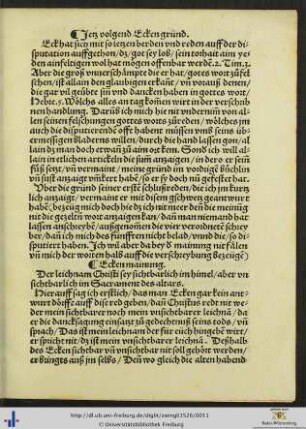 ¶ Jetz volgend Ecken gründ.
Eck hat sich mit so letzen berden vnd reden auff der disputation
auffgethon/ dz/ got sey lob/ sein torhait aim yeden
ainfeltigen wol hat mögen offenbar werdē. 2. Tim. 3.
Aber die groß vnuerschämpte die er hat/ gottes wort zů felschen
/ ist allain den glaubigen erkāt/
die gar vil geübte sinn vnd dancken haben in gottes wort
Hebr. 5. Wölchs alles an tag komen wirt in der verschribnen
handlung. Darūb ich mich hie nit vnderwin von allen
seinen felschungen gottes worts zů reden/ wölches mir
auch die disputierendē offt habent müssen vmb seins übermessigen
bläderns willen/ durch die hand lassen gon/ allain
dz man doch etwan zů aim ort kem. Sond ich will allain
in etlichen artickeln die sum̄ anzaigen/ in dero er sein
füß setzt/ vn̄ vermaint/ meine gründ im vordrige büchlin
vn̄ sunst anzaigt vmkert habē/ so er sy doch nit gekeert hat.
Vber die gründ seiner erste schlußreden/ die ich jm kurtzlich
anzaigt/ vermaint er mit dem gschwetz
habē/ bezeüg mich doch hie/ dz ich nit meer den die mainung
nit die gezeltē wort anzaigen kan/ dan man niemand hat
lassen anschreybē/ außgenomen die vier verordnete schreyber
/ dan ich mich des fünfften nicht belad/ vnnd die/ so disputiert
haben. Ich wil aber da bey d mainung nit fälen
vn̄ mich der worten halb auff die verschreybung bezeügē
¶ Ecken mainung.
Der leichnam Christi sey sichtbarlich im himel/ aber vnsichtbarlich
im Sacrament des altars.
Hierauff sag ich erstlich/ das man Ecken gar kein antwurt
dörfft auff diß red geben/ dan̄ Christus redt nit weder
mein sichtbaren noch mein vnsichtbaren leichnā/ da
er die dancksagung einsatz zů gedechtnuß seins tods/ vn̄
sprach/ Das ist mein leichnam der für eüch hingebē wirt/
er spricht nit/ dz ist mein vnsichtbarer leichnā. Deßhalb
des Ecken sichtbar vn̄ vnsichtbar nit soll gehört werden/
er bringts auß jm selbs/ Den wo gleich die alten habend
http://dl.ub.uni-freiburg.de/diglit/zwingli1526/0011
© Universitätsbibliothek Freiburg
Baden-Württemberg